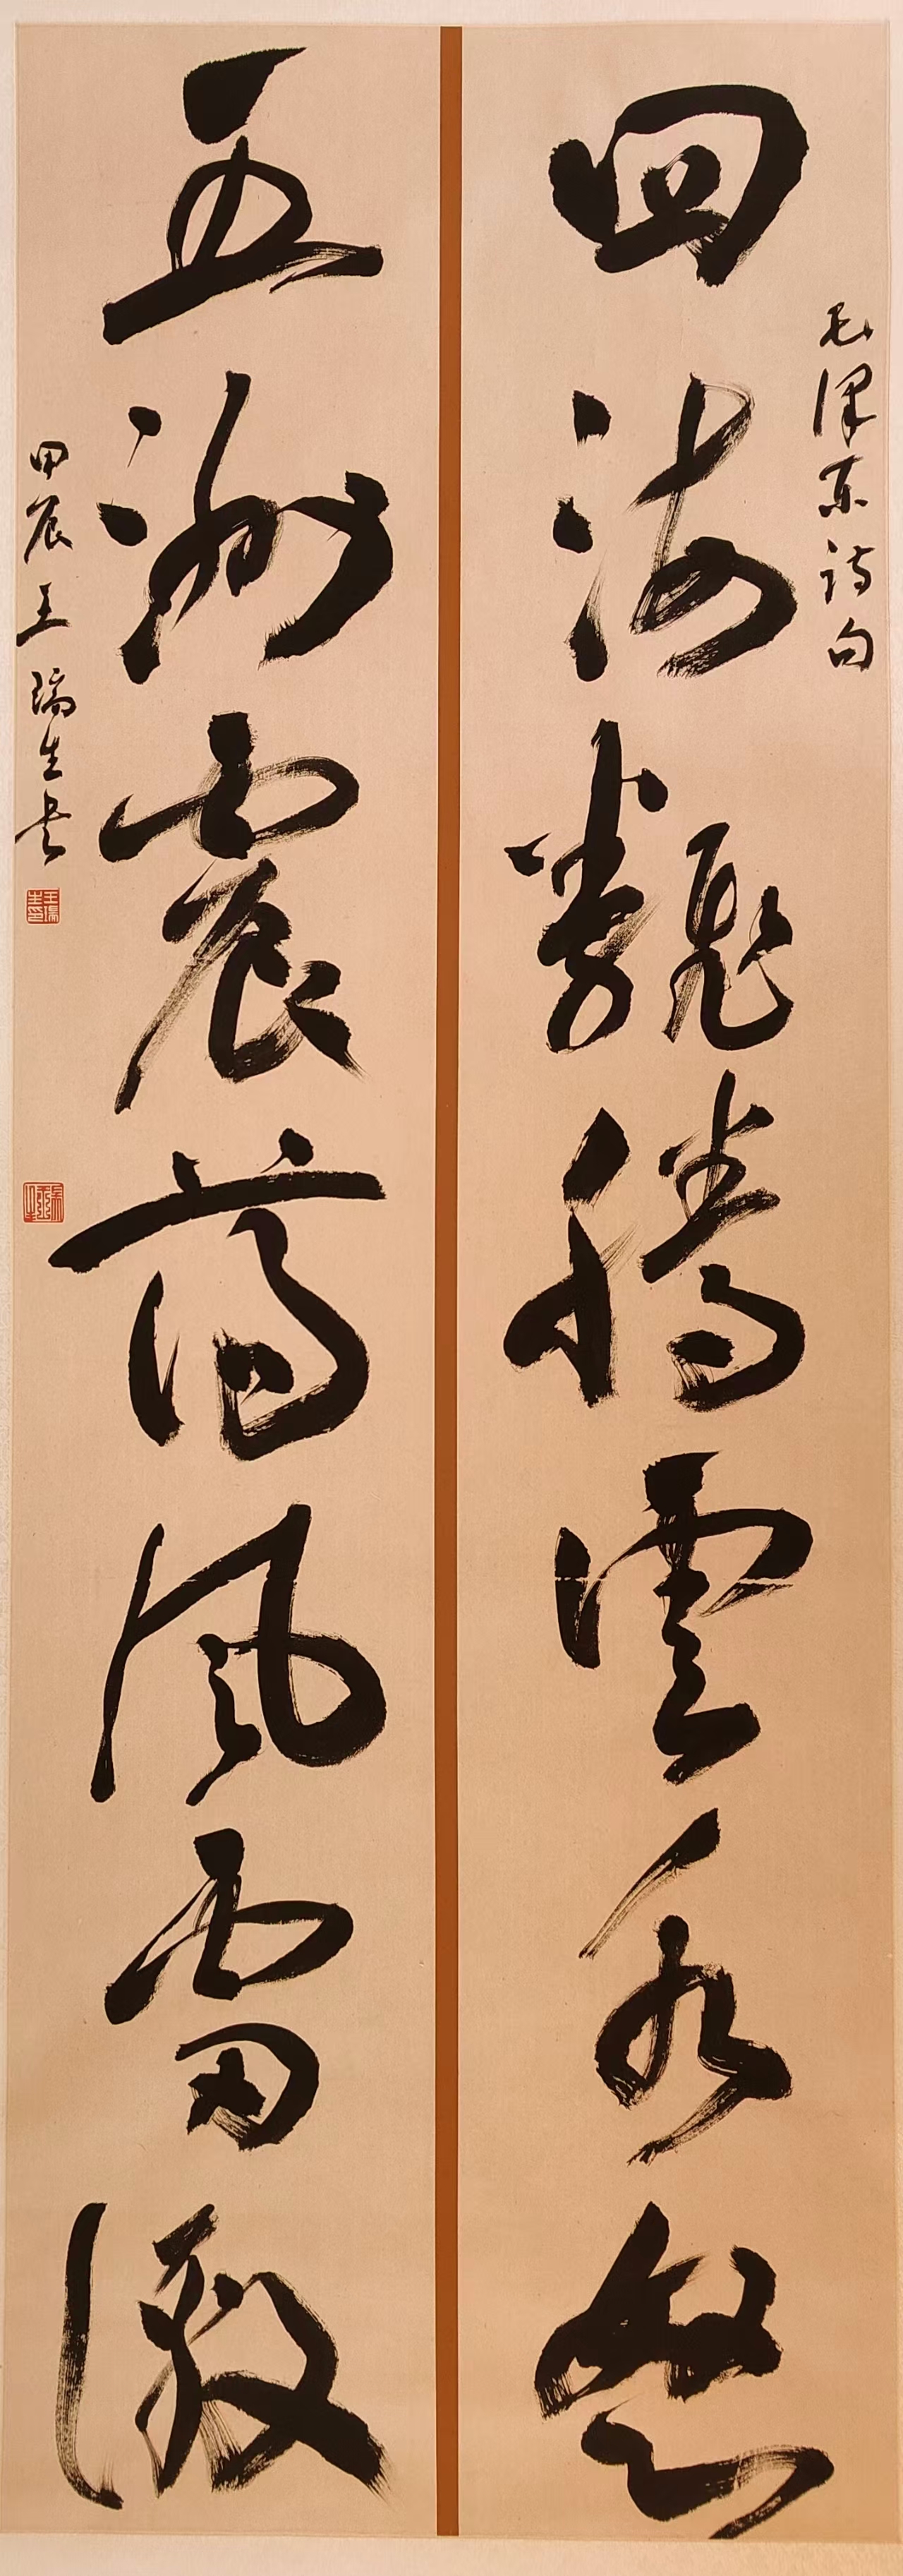 毛泽东诗句
四海翻腾雲水怒
五洲震荡風雷激
甲辰王瑞生书